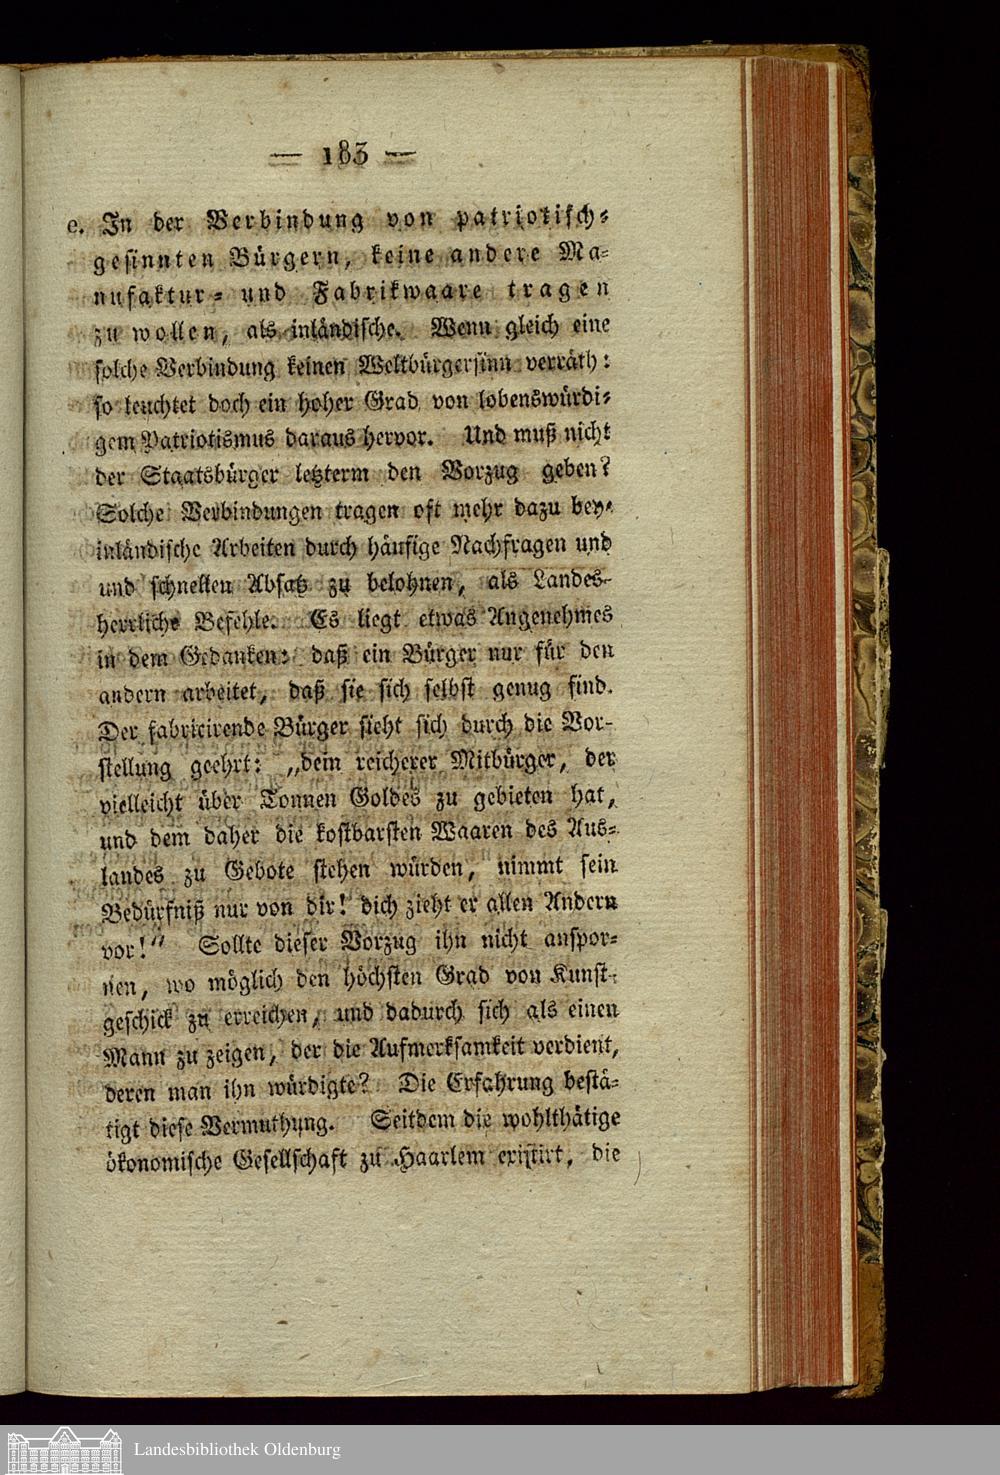 — 183 —
e. In der Verbindung von patriotisch-
gesinnten Bürgern, keine andere Ma-
nufaktur- und Fabrikwaare tragen
zu wollen, als inländische. Wenn gleich eine
solche Verbindung keinen Weltbürgersinn verräth:
so leuchtet doch ein hoher Grad von lobenswürdi-
gem Patriotismus daraus hervor. Und muß nicht
der Staatsbürger letzterm den Vorzug geben?
Solche Verbindungen tragen oft mehr dazu bey,
inländische Arbeiten durch häufige Nachfragen und
und schnellen Absatz zu belohnen, als Landes-
herrliche Befehle. Es liegt etwas Angenehmes
in dem Gedanken: daß ein Bürger nur für den
andern arbeitet, daß sie sich selbst genug sind.
Der fabricirende Bürger sieht sich durch die Vor-
stellung geehrt: „dein reicherer Mitbürger, der
vielleicht über Tonnen Goldes zu gebieten hat,
und dem daher die kostbarsten Waaren des Aus-
landes zu Gebote stehen würden, nimmt sein
Bedürfniß nur von dir! dich zieht er allen Andern
vor!“ Sollte dieser Vorzug ihn nicht anspor-
nen, wo möglich den höchsten Grad von Kunst-
geschick zu erreichen, und dadurch sich als einen
Mann zu zeigen, der die Aufmerksamkeit verdient,
deren man ihn würdigte? Die Erfahrung bestä-
tigt diese Vermuthung. Seitdem die wohlthätige
ökonomische Gesellschaft zu Haarlem existirt, die
Landesbibliothek Oldenburg